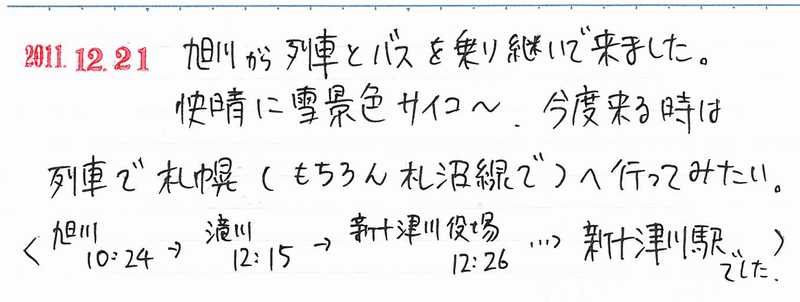 2011.12.21 旭川から列車とバスを乗り継いで来ました。
快晴に雪景色サイコ～. 今度来る時は
列車で札幌(もちろん札沼線で)へ行ってみたい。
〈旭川 10:24 → 滝川 12:15 → 新十津川役場 12:26 …> 新十津川駅でした.〉